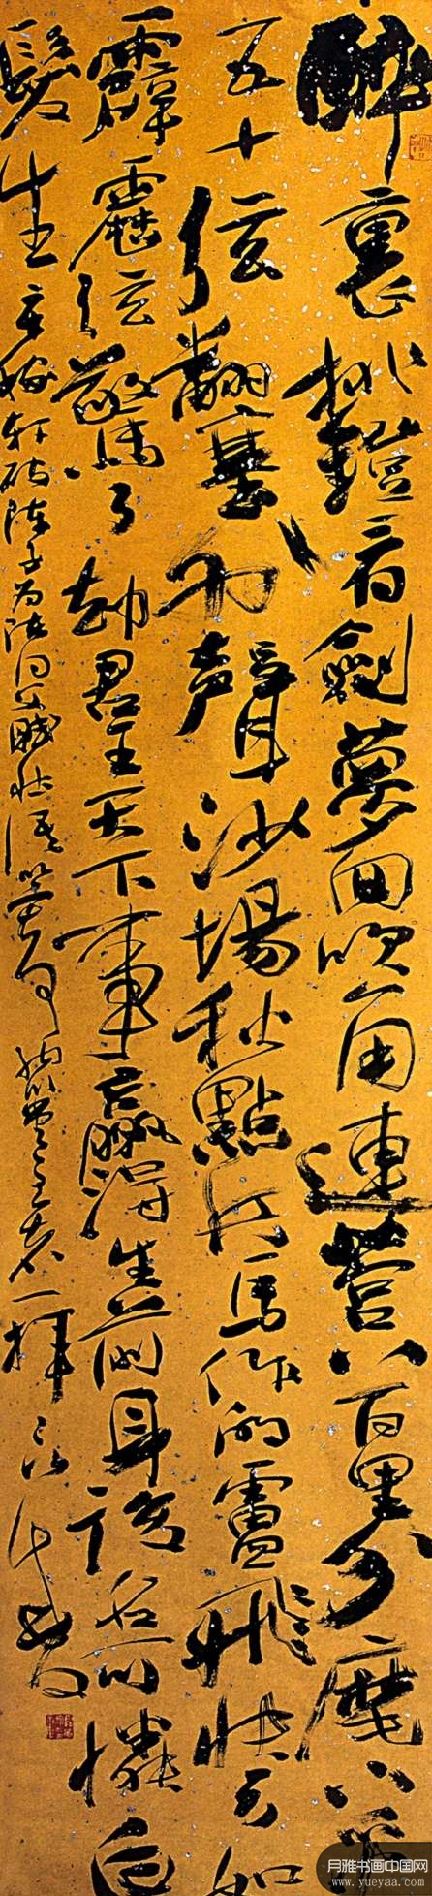 醉裏挑鐙看劍夢回吹角連營八百里分麾下炙
五十弦翻塞外聲沙場秋點兵馬作的盧飛快弓如
霹靂弦驚了却君王天下事贏得生前身後名可憐白
髮生辛稼軒破陣子為陳同父賦壯語以寄
月雅书画中国网
www.yueyaa.com